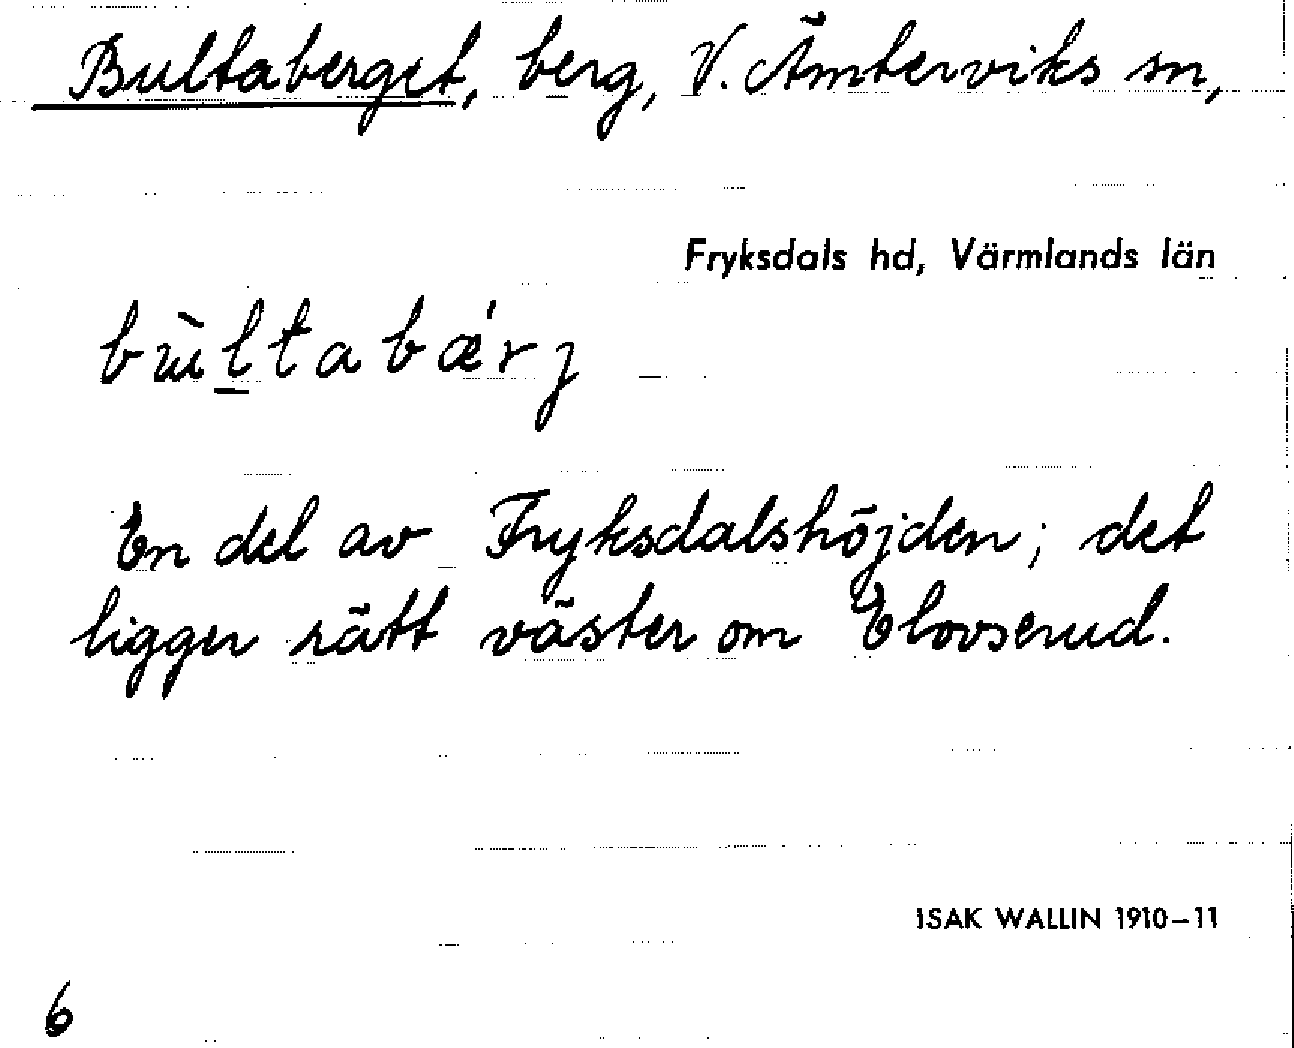 Bultaberget, berg, V. Ämterviks sn,
Fryksdals hd, Värmlands län
bɯ̀l̠tabǽrj
En del av Fryksdalshöjden; det
ligger rätt väster om Elovserud.
ISAK WALLIN 1910–11
6